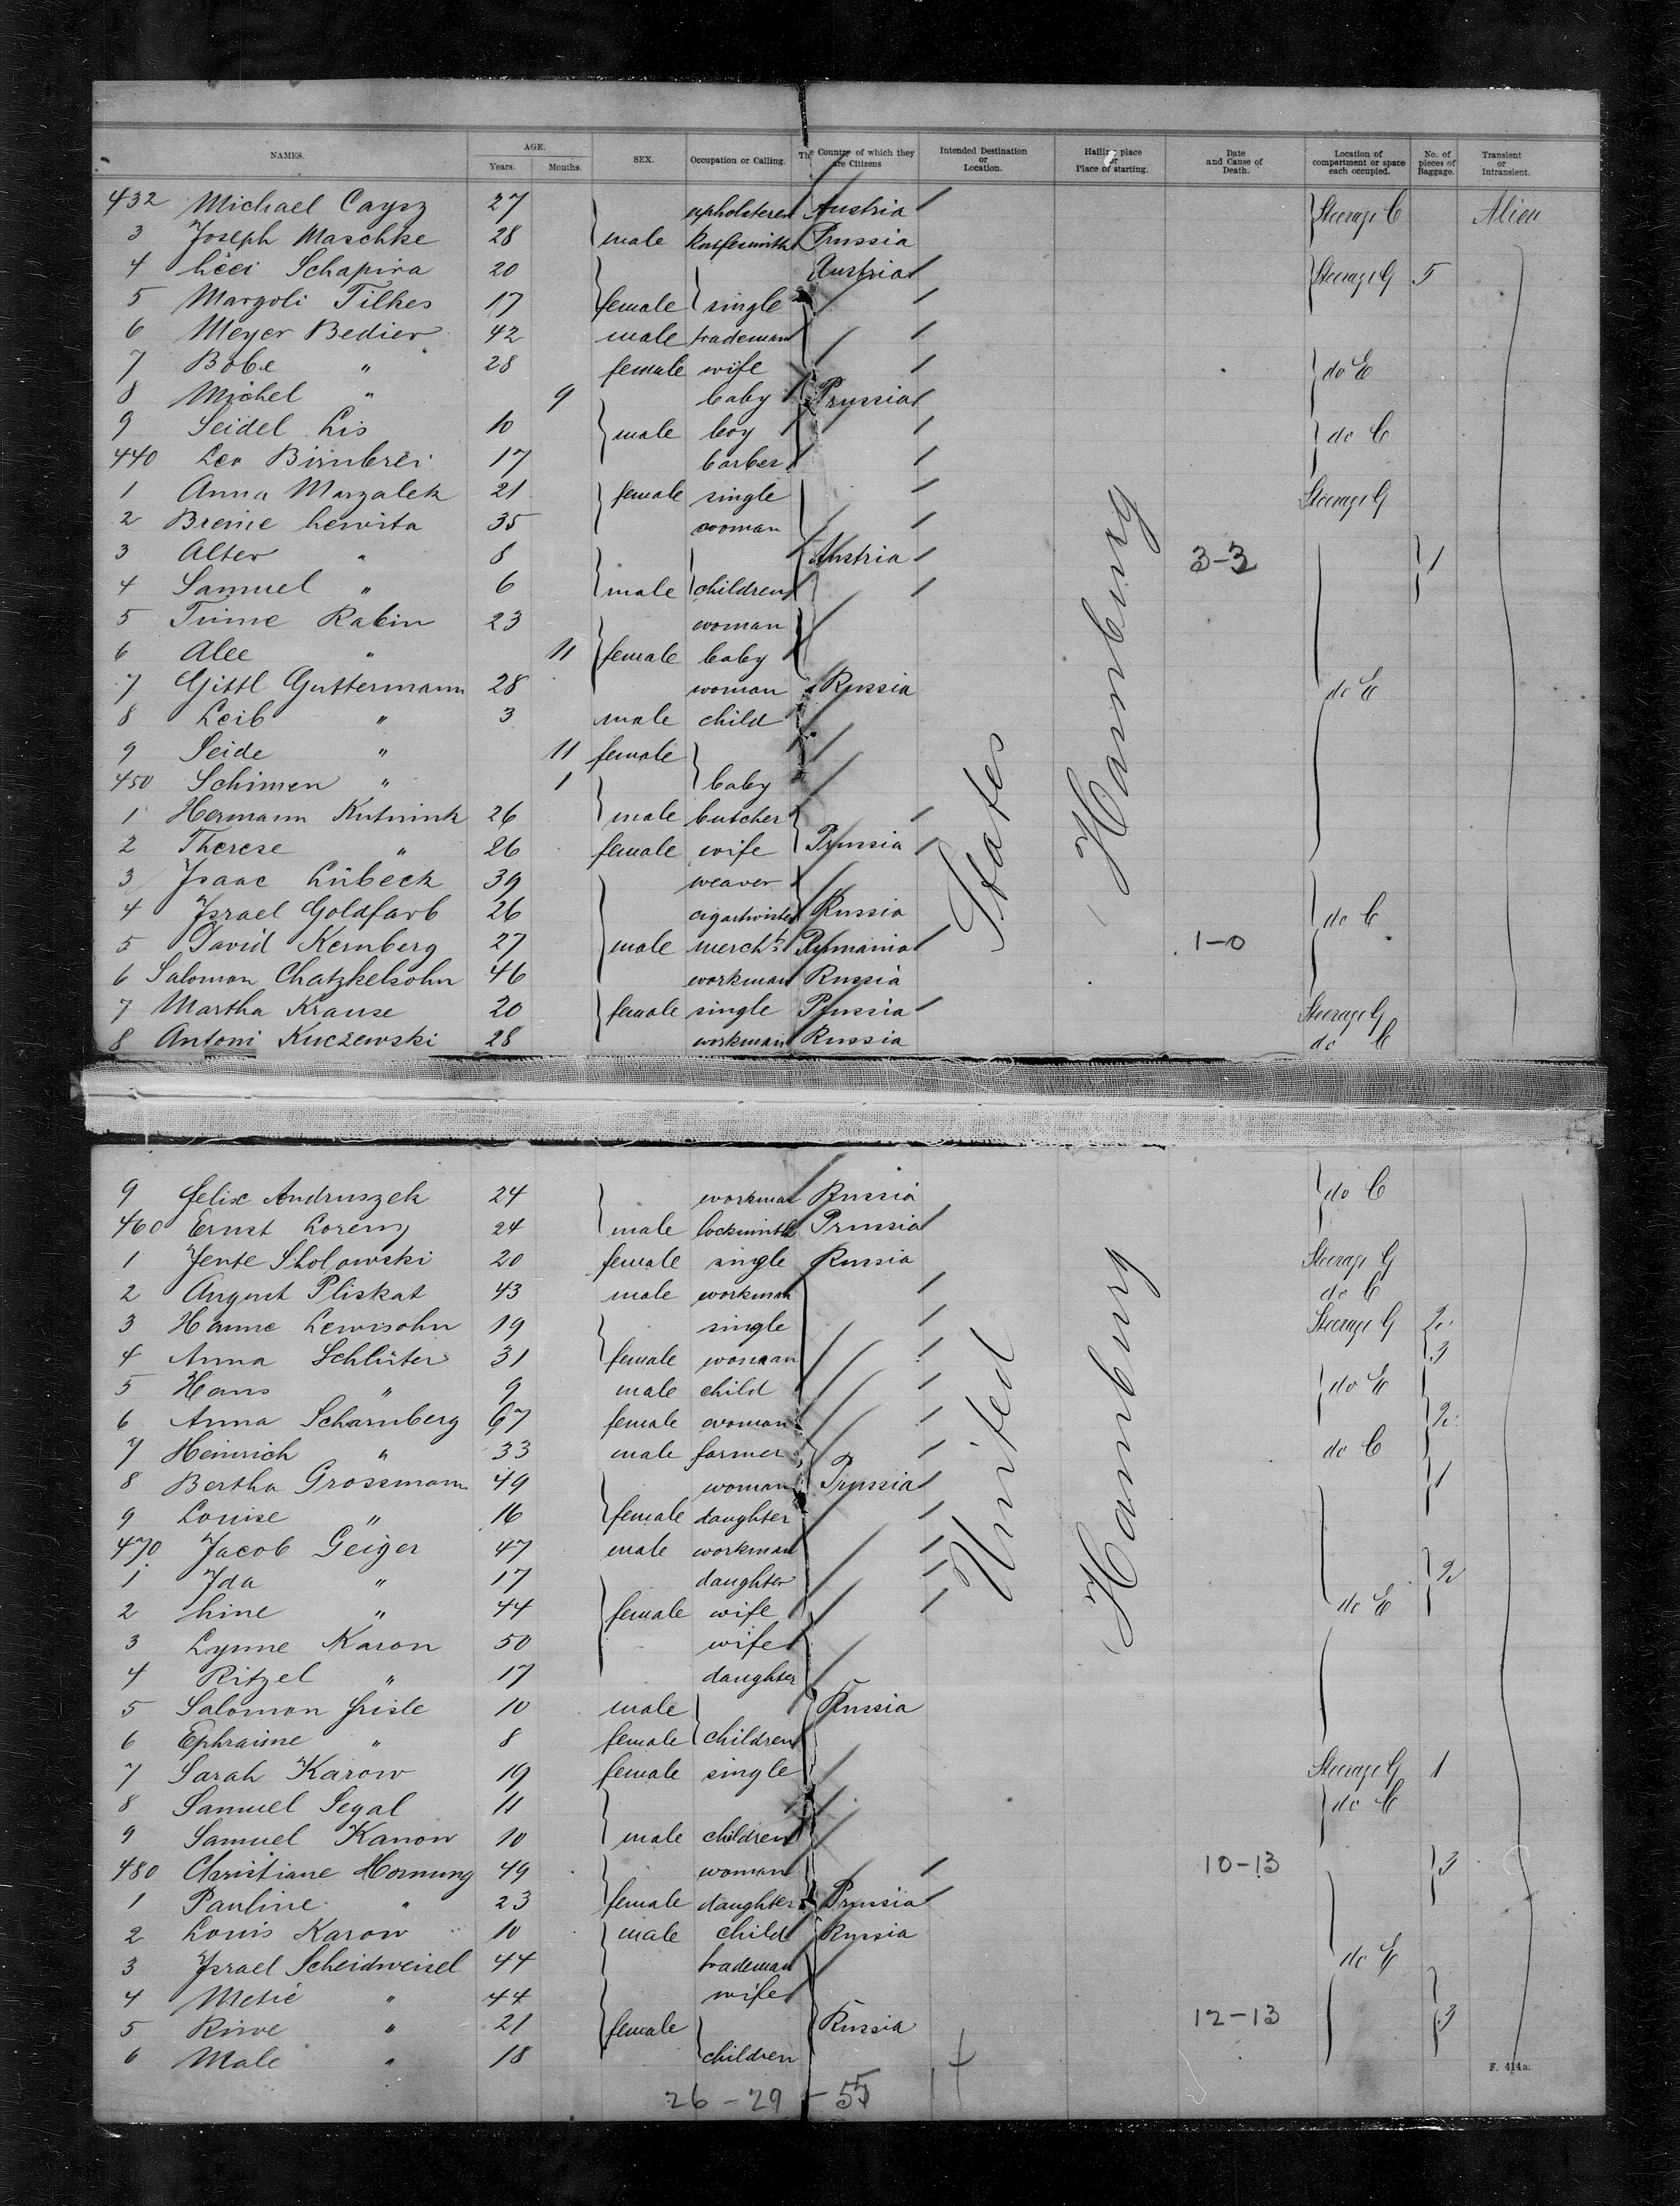 NAMES. AGE. SEX. Occupation or Calling. The Country of which they are Citizens Intended Destination or Location. Hailing place or Place of starting. Date and Cause of Death. Location of compartment or space each occupied. No. of pieces of Baggage. Transient or Intransient.
Years. Months.
432 Michael Caysz 27 upholsterer Austria Steerage C Alien
3 Joseph Maschke 28 male Prussia
4 Schapira 20 Austria Steerage G 5
5 Margoli Tilkes 17 female single
6 Meyer Bedier 42 male trademan
7 Bobe " 28 female wife do E
8 Michel " 9 baby Prussia
9 Seidel Lis 10 male boy do C
440 Leo Birnbrei 17 barber
1 Anna Marzalek 21 female single Steerage G
2 Breine Lewita 35 woman
3 Alter " 8 Austria 3-3 1
4 Samuel " 6 male children
5 Rabin 23 woman
6 Alee " 11 female baby
7 Gittl Guttermann 28 woman Russia do E
8 Leib " 3 male child
9 Seide " 11 female
450 Schimen " 1 baby
1 Hermann Kutnink 26 male butcher
2 Therese " 26 female wife Prussia
3 Isaac Lübeck 39 weaver
4 Israel Goldfarb 26 cigartwister Russia do C
5 David Kernberg 27 male mercht. Rumania 1-0
6 Salomon Chatzkelsohn 46 workman Russia
7 Martha Krause 20 female single Prussia Steerage G
8 Antoni Kuczewski 28 workman Russia do C
States
Hamburg
9 Felix Andruszek 24 workman Russia do C
460 Ernst Lorenz 24 male locksmith Prussia
1 Jente Sholowski 20 female single Russia Steerage G
2 August Pliskat 43 male workman do C
3 Hanne Lewisohn 19 single Steerage G 2
4 Anna Schlüter 31 female woman 3
5 Hans " 9 male child do E
6 Anna Scharnberg 67 female woman 2
7 Heinrich " 33 male farmer do C
8 Bertha Grossmann 49 woman Prussia 1
9 Louise " 16 female daughter
470 Jacob Geiger 47 male workman
1 Ida " 17 daughter 2
2 Line " 44 female wife do E
3 Lynne Karon 50 wife
4 Ritzel " 17 daughter
5 Salomon Frisle 10 male Russia
6 Ephraime " 8 female children
7 Sarah Karow 19 female single Steerage G 1
8 Samuel Segal 11 do C
9 Samuel Kanow 10 male children
480 Christiane Hornung 49 woman 10-13 3
1 Pauline " 23 female daughter Prussia
2 Louis Karow 10 male child Russia
3 Israel Scheidweisel 44 trademan do E
4 Metie " 44 wife
5 Riwe " 21 female Russia 12-13 3
6 Male " 18 children
United
Hamburg
F. 414a.
26-29-55